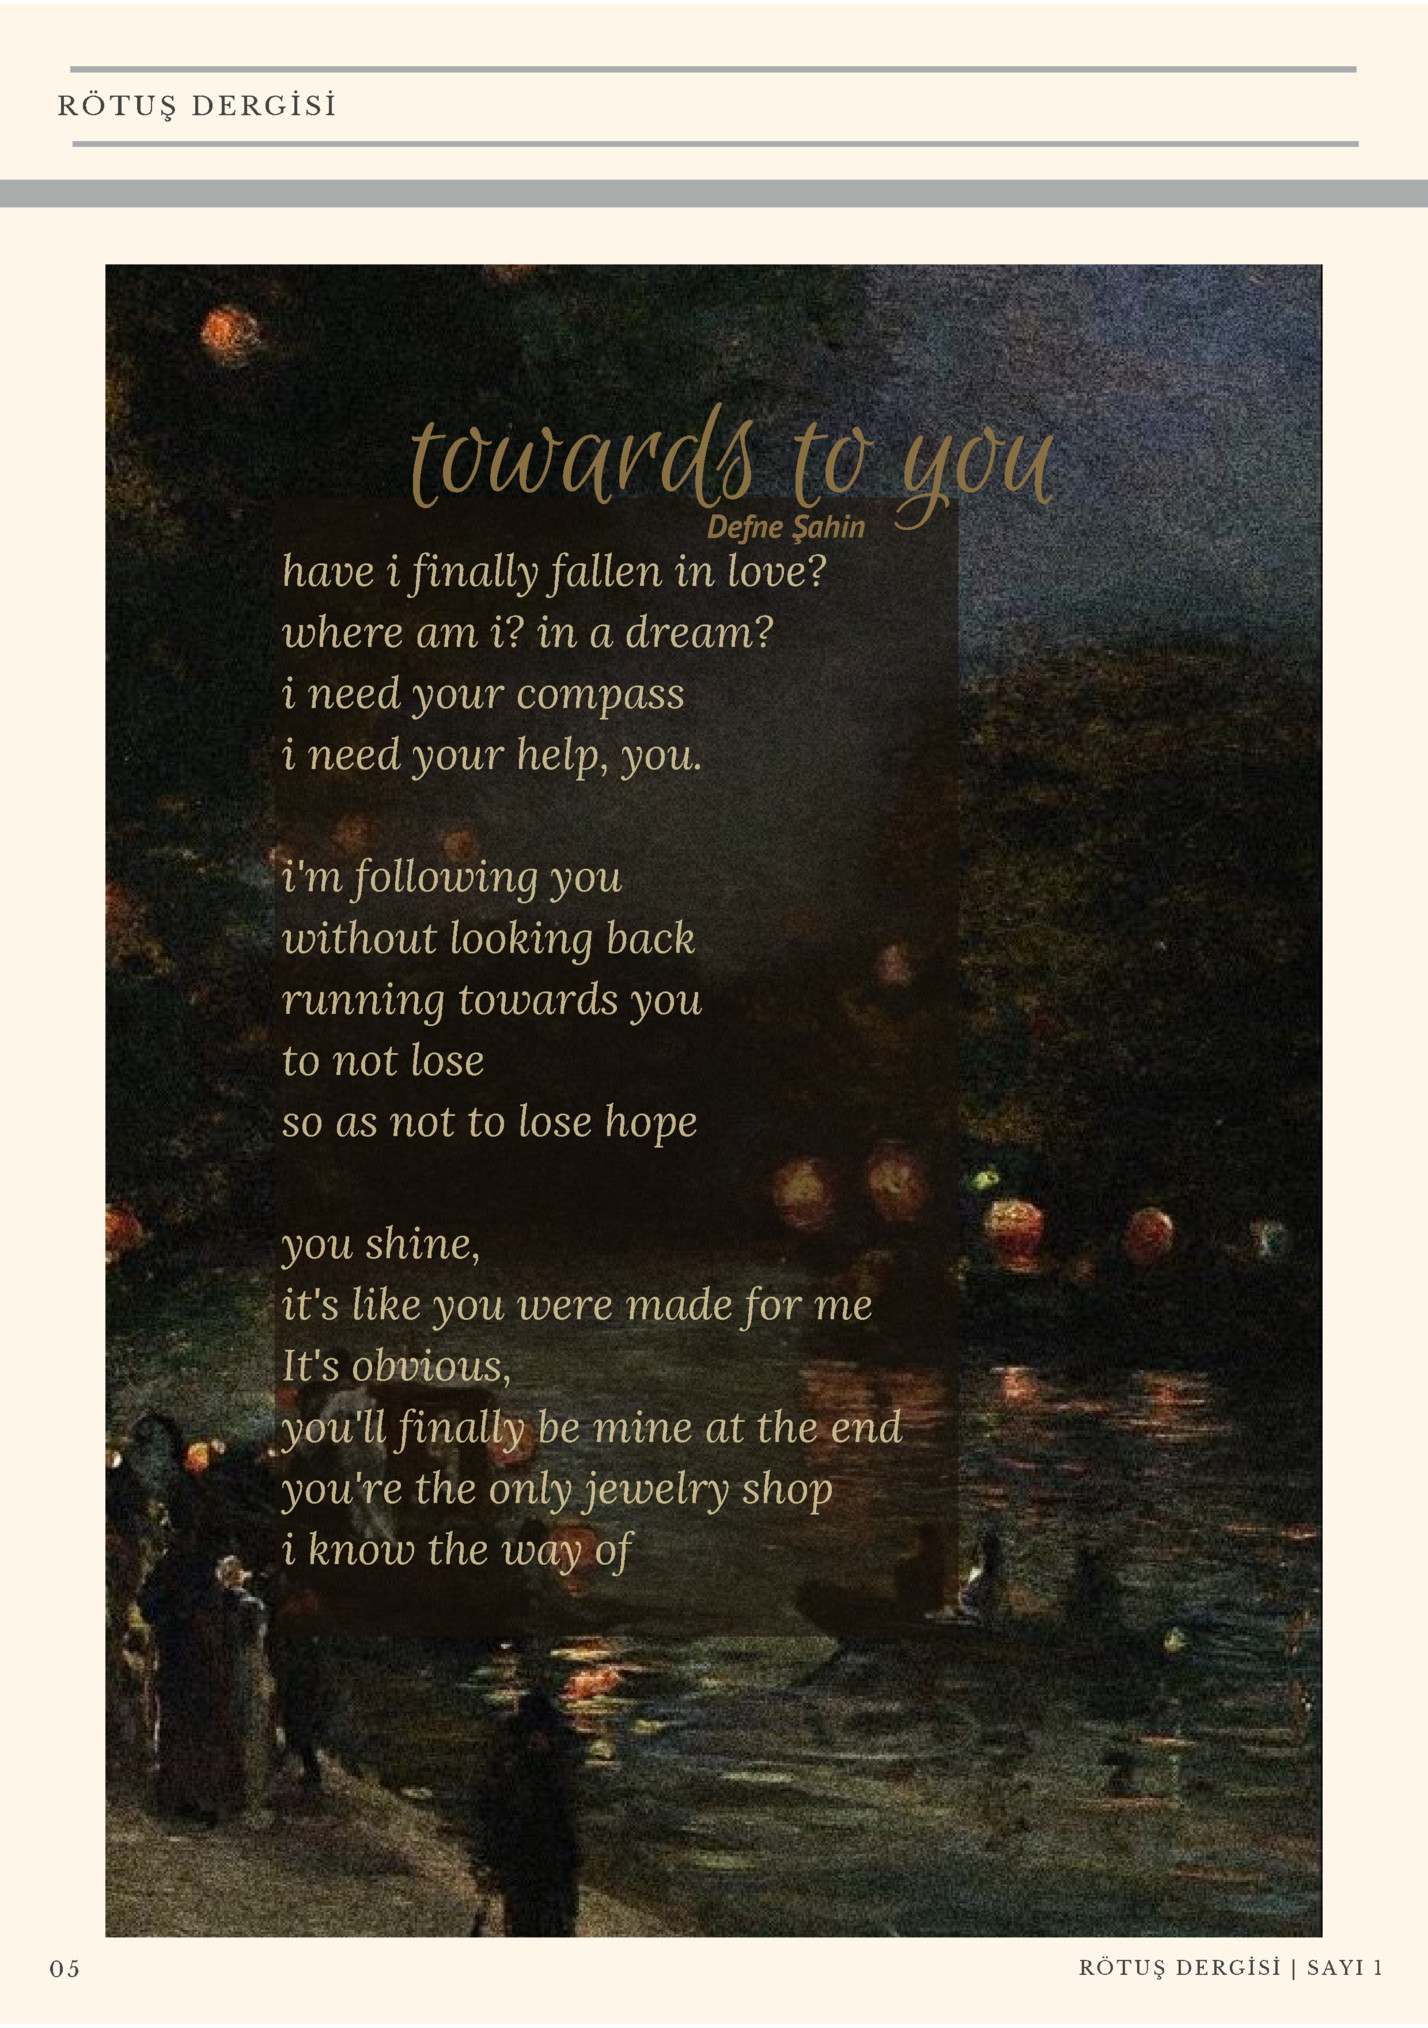 RÖTUŞ DERGİSİ
towards to you
Defne Şahin
have i finally fallen in love?
where am i? in a dream?
i need your compass
i need your help, you.
i'm following you
without looking back
running towards you
to not lose
so as not to lose hope
you shine,
it's like you were made for me
It's obvious,
you'll finally be mine at the end
you're the only jewelry shop
i know the way of
05
RÖTUŞ DERGİSİ | SAYI 1